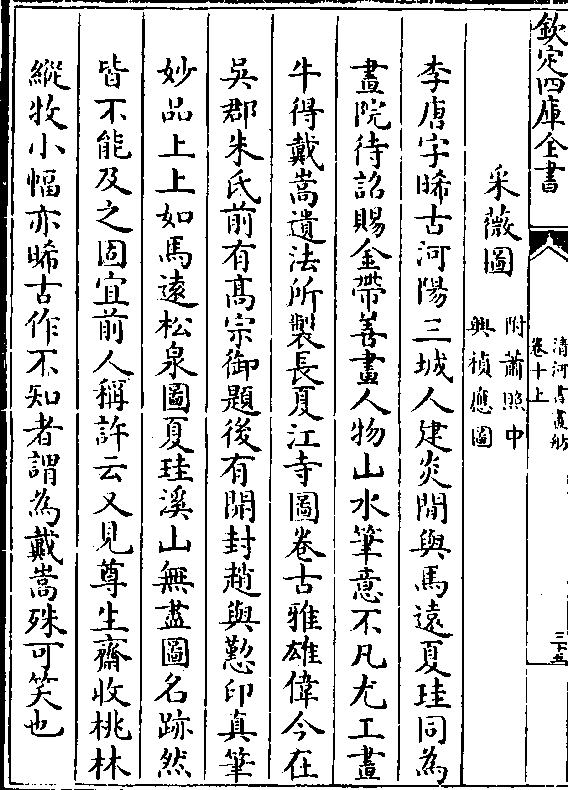 欽定四庫全書
清河書畫舫
卷十上
三十五
采薇圖
附蕭照中
興禎應圖
李唐字晞古河陽三城人建炎間與馬遠夏珪同為
畫院待詔賜金帶善畫人物山水筆意不凡尤工畫
牛得戴嵩遺法所製長夏江寺圖卷古雅雄偉今在
吳郡朱氏前有髙宗御題後有開封趙與懃印真筆
妙品上上如馬遠松泉圖夏珪溪山無盡圖名跡然
皆不能及之固宜前人稱許云又見尊生齋收桃林
縱牧小幅亦晞古作不知者謂為戴嵩殊可笑也